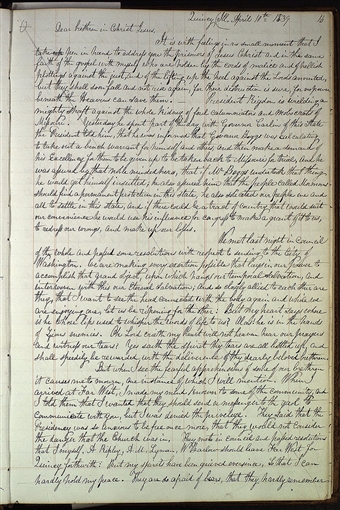 Quincy Ill, April 10th 1839
Dear brethren in Christ Jesus
It is with feelings of no small moment that I
take pen in hand to address you, the prisoners of Jesus Christ and in the same
faith of the gospel with myself, who are holden by the cords of malice and of hellish
plottings against the just, and of the lifting up the heel against the Lord's anointed,
but they shall soon fall and not rise again, for their destruction is sure, for no power
beneath the Heavens can save them. President Rigdon is wielding a
mighty shaft against the whole kidney of foul calumniators and mobocrats of
Missouri. Yesterday he spent part of the day with Governor Carlin of this state.
the President told him, that he was informed that Governor Boggs was calculating
to take out a bench warrant for himself and others, and then make a demand of
his Excellency for them to be given up, to be taken back to Missouri for trial, And he
was assured by that noble minded hero, that if Mr Boggs undertook the thing,
he would get himself insulted, he also assured him that the people called Mormons
should find a permanent protection in this state, he also solicited our people, one and
all to settle in this state, And if there could be a tract of country that would suit
our convenience, he would use his influence for Congress to make a grant of it to us,
to redress our wrongs, and make up our losses.
We met last night in Council
of the whole and passed some resolutions with respect to sending to the City of
Washington. We are making every exertion possible that lays in our power, to
accomplish that grand object, upon which hangs our temporal salvation, and
interwoven with this our Eternal salvation, And so closely allied to each other are
they, that I want to see the head connected with the body again and while we
are enjoying one, let us be ripening for the other: But my heart says where
is he whose lips used to whisper the words of life to us? Alas! he is in the hands
of Zions enemies. O Lord crieth my heart will not heaven hear our prayers
and witness our tears! Yes saith the spirit, thy tears are all bottled up, and
shall speedily be rewarded with the deliverance of thy dearly beloved brethren.
But when I see the fearful apprehensions of some of our brethren
it causes me to mourn, one instance of which I will mention. When I
arrived at Far West, I made my mind known to some of the community, and
I told them that I wanted that they should send a messenger to the gaol to
communicate with you, but I was denied the privilege. They said that the
Presidency was so anxious to be free once more, that they would not consider
the danger that the Church was in. They met in council and passed resolutions
that myself, A Ripley, A. M. Lyman, W Barlow should leave Far West for
Quincy forthwith: But my spirits have been grieved ever since, so that I can
hardly hold my peace. They are so afraid of Boggs, that they hardly remember